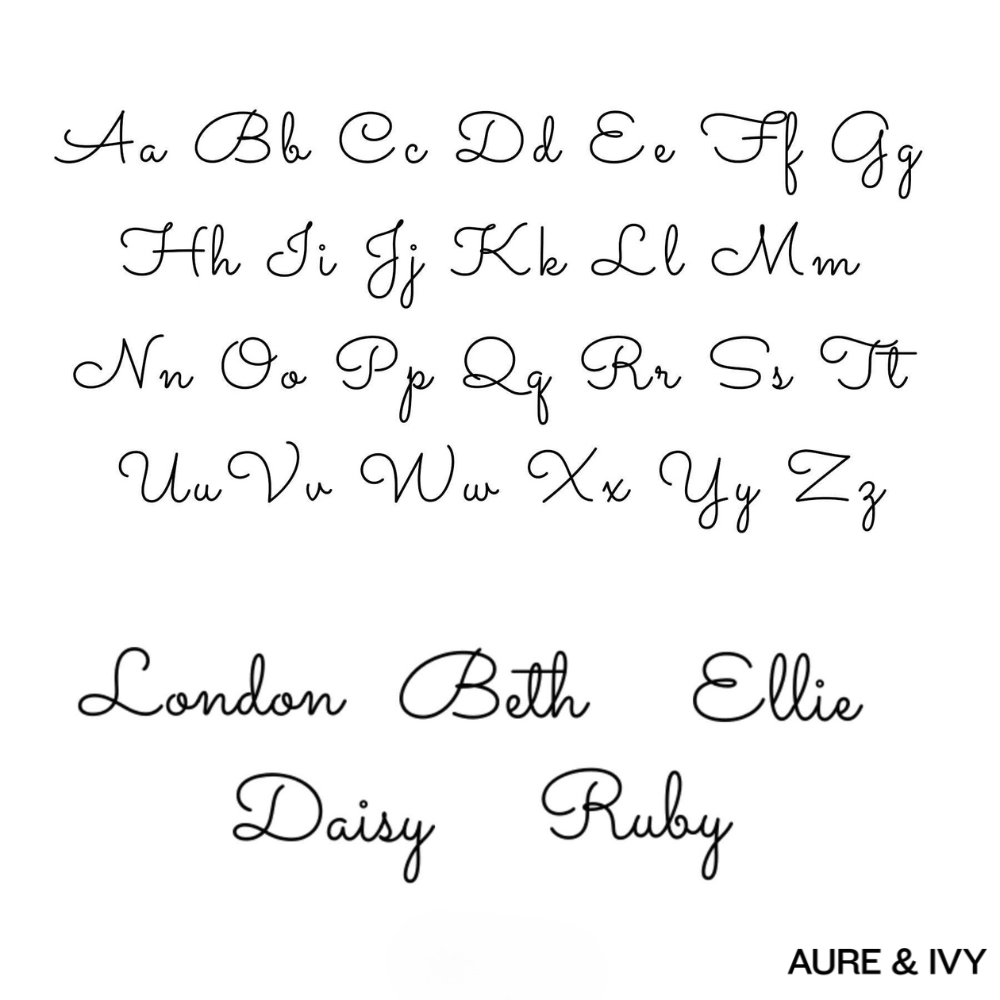 Aa Bb Cc Dd Ee Ff Gg
Hh Ii Jj Kk Ll Mm
Nn Oo Pp Qq Rr Ss Tt
Uu Vv Ww Xx Yy Zz
London Beth Ellie
Daisy Ruby
AURE & IVY